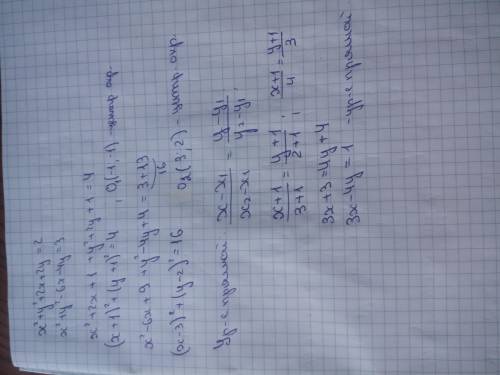 x²+y²+2x+2y=2
x²+y²-6x-4y=3
x²+2x+1+y²+2y+1=4
(x+1)²+(y+1)²=4, O₁(-1;-1) -центр окр.
x²-6x+9+y²-4y+4=3+13
16
(x-3)²+(y-2)²=16 O₂(3;2)-центр. окр.
Ур-е прямой (x-x₁)/(x₂-x₁)=(y-y₁)/(y₂-y₁);
(x+1)/(3+1)=(y+1)/(2+1); (x+1)/4=(y+1)/3
3x+3=4y+4
3x-4y=1 -ур-е прямой